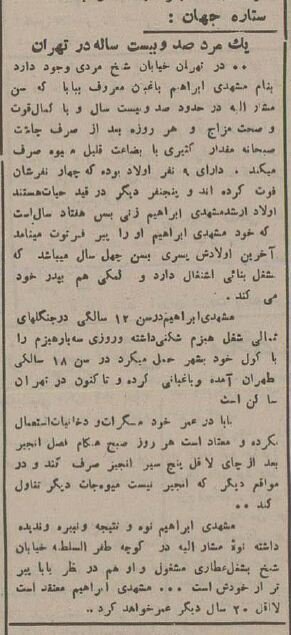 ستاره جهان :
يك مرد صد وبيست ساله در تهران
۰۰ در تهران خيابان شيخ مردی وجود دارد
بنام مشهدی ابراهيم باغبان معروف ببابا كه سن
مشار اليه در حدود صد وبيست سال و با كمال قوت
و صحت مزاج و هر روزه بعد از صرف چاشت
صبحانه مقدار كثيری با بضاعت قليل ميوه صرف
ميكند . دارای ۹ نفر اولاد بوده كه چهار نفرشان
فوت كرده اند و پنجنفر ديگر در قيد حياتهستند
اولاد ارشدمشهدی ابراهيم زنی بسن هفتاد سال است
كه خود مشهدی ابراهيم او را پير فرتوت مينامد
آخرين اولادش پسری بسن چهل سال ميباشد كه
بشغل بنائی اشتغال دارد و كمكی هم بپدر خود
می كند .
مشهدی ابراهيم درسن ۱۲ سالگی درجنگلهای
شمالی شغل هيزم شكنی داشته وروزی سه بارهيزم را
با كول خود بشهر حمل ميكرد در سن ۱۸ سالگی
بطهران آمده وباغبانی كرده و تا كنون در تهران
سا كن است
بابا در عمر خود مسكرات و دخانيات استعمال
نكرده و معتاد است هر روز صبح هنگام فصل انجير
بعد از چای لااقل پنج سير انجير صرف كند و در
مواقع ديگر كه انجير نيست ميوه جات ديگر تناول
كند ۰۰
مشهدی ابراهيم نوه و نتيجه ونبيره ونديده
داشته نوهٔ مشار اليه در كوچه ظفر السلطنه خيابان
شيخ بشغل عطاری مشغول و او هم در نظر بابا پير
تر از خودش است ۰۰۰ مشهدی ابراهيم معتقد است
لااقل ۲۰ سال ديگر عمر خواهد كرد ..